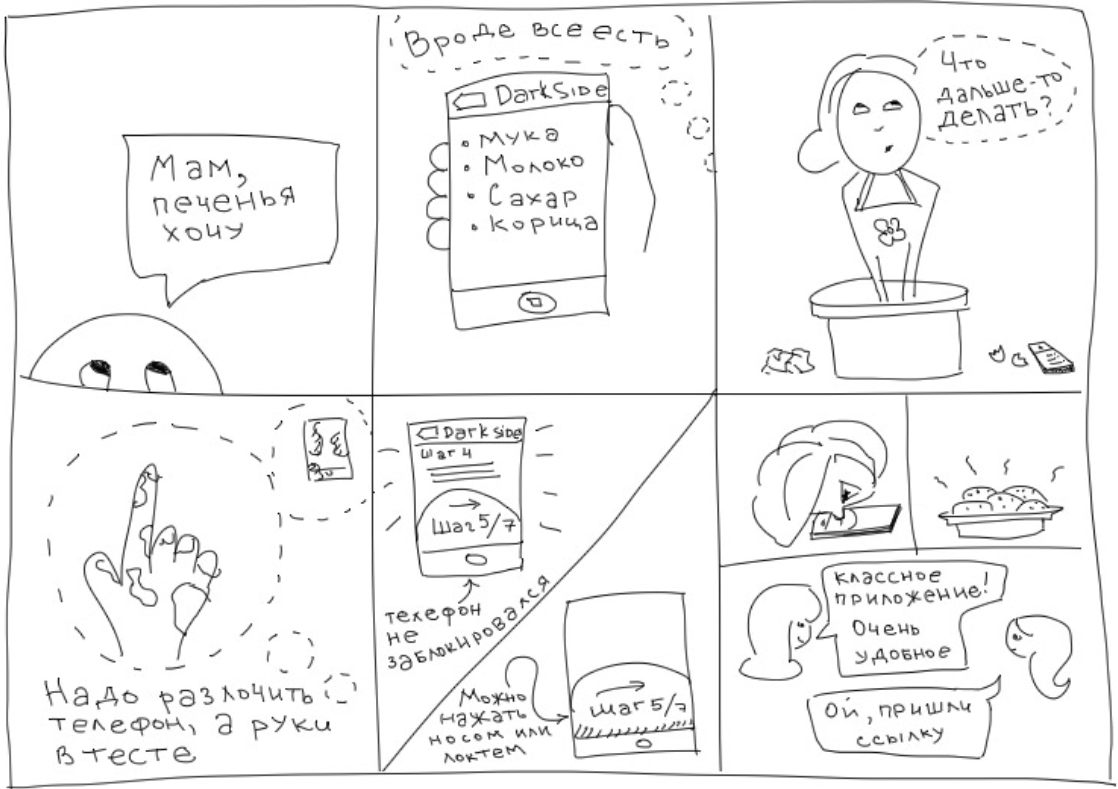 Мам,
печенья
хочу
Вроде все есть
DarkSide
• Мука
• Молоко
• Сахар
• Корица
Что
дальше-то
делать?
Надо разлочить
телефон, а руки
в тесте
Dark side
Шаг 4
Шаг 5/7
телефон
не
заблокировался
Можно
нажать
носом или
локтем
Шаг 5/7
классное
приложение!
Очень
удобное
Ой, пришли
ссылку